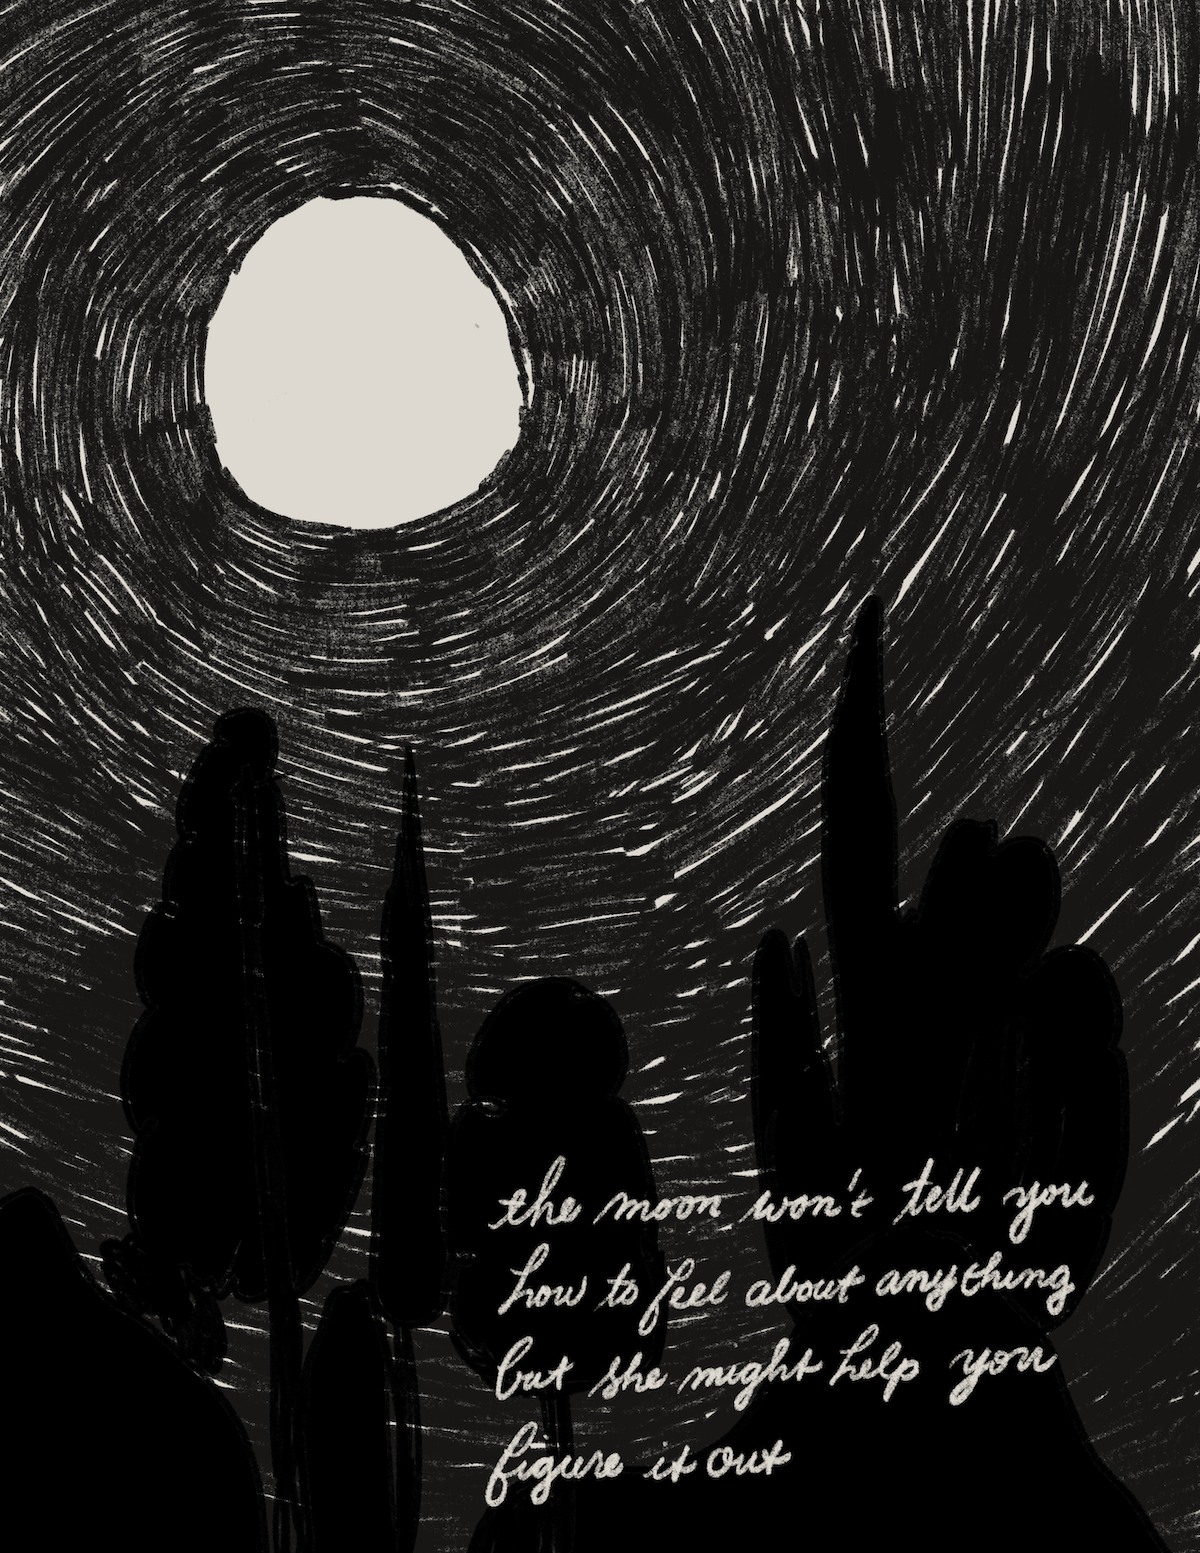 the moon won't tell you
how to feel about anything
but she might help you
figure it out